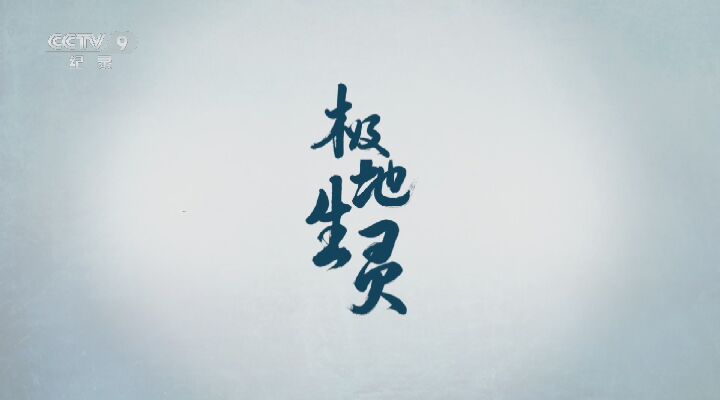 CCTV 9
纪录
极地
生灵